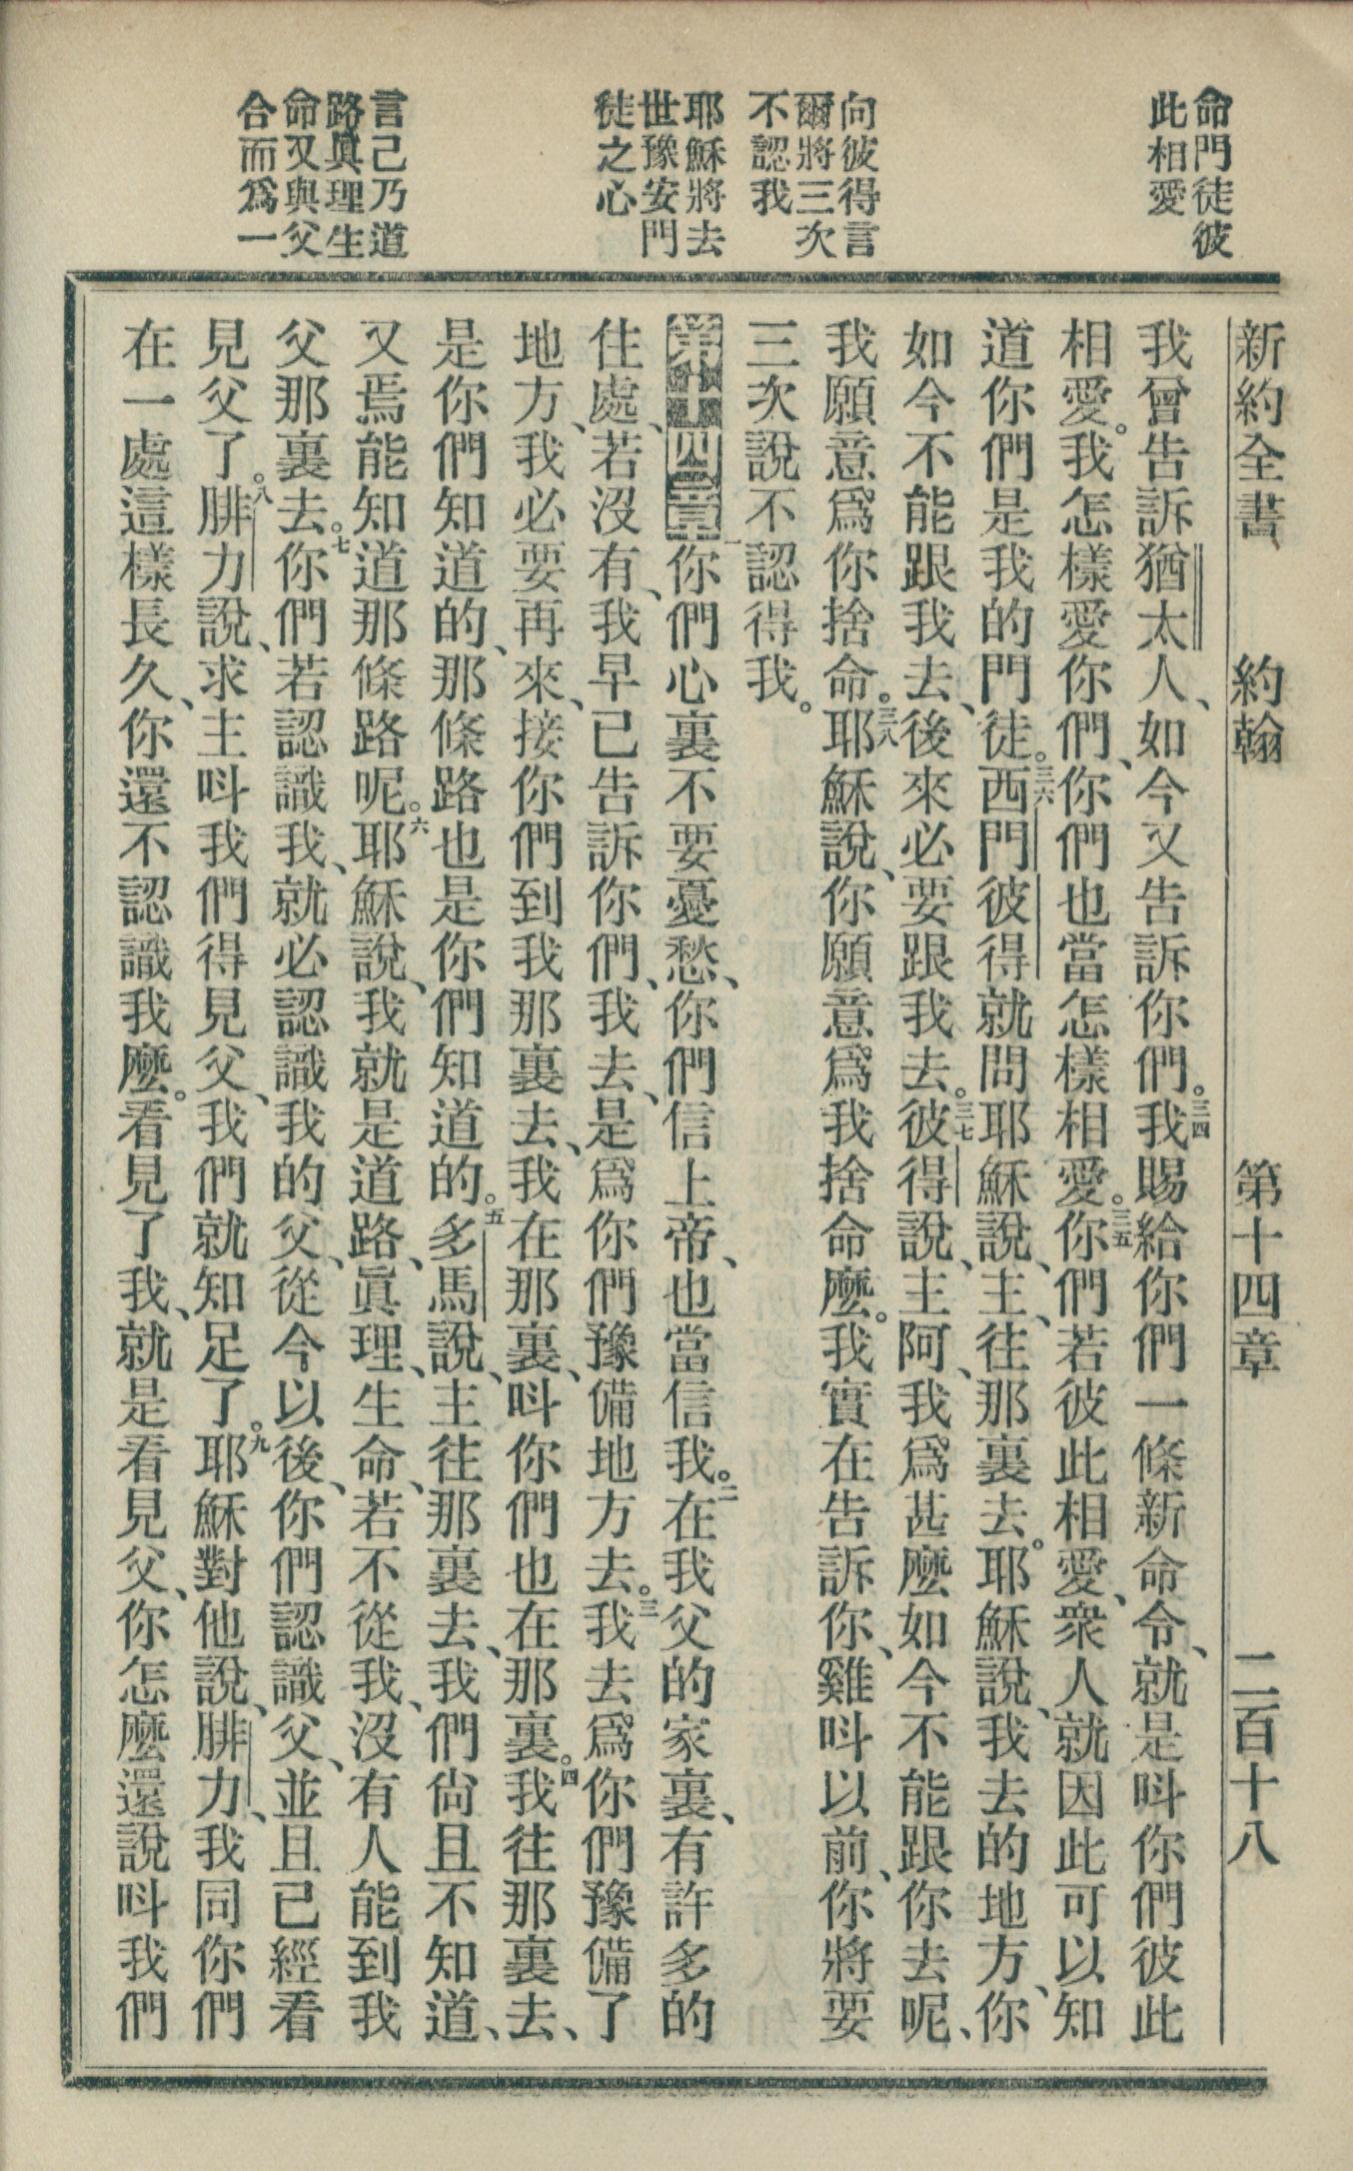 新約全書 約翰 第十四章 二百十八
命門徒彼
此相愛
向彼得言
爾將三次
不認我
耶穌將去
世豫安門
徒之心
言己乃道
路眞理生
命又與父
合而爲一
我曾告訴猶太人、如今又告訴你們。三四我賜給你們一條新命令、就是呌你們彼此
相愛。我怎樣愛你們、你們也當怎樣相愛。三五你們若彼此相愛、衆人就因此可以知
道你們是我的門徒。三六西門彼得就問耶穌說、主、往那裏去。耶穌說、我去的地方、你
如今不能跟我去、後來必要跟我去。三七彼得說、主阿、我爲甚麼如今不能跟你去呢、
我願意爲你捨命。三八耶穌說、你願意爲我捨命麼。我實在告訴你、雞呌以前、你將要
三次說不認得我。
第十四章一你們心裏不要憂愁、你們信上帝、也當信我。二在我父的家裏、有許多的
住處、若沒有、我早已告訴你們、我去、是爲你們豫備地方去。三我去爲你們豫備了
地方、我必要再來、接你們到我那裏去、我在那裏、呌你們也在那裏。四我往那裏去、
是你們知道的、那條路也是你們知道的。五多馬說、主往那裏去、我們尙且不知道、
又焉能知道那條路呢。六耶穌說、我就是道路、眞理、生命、若不從我、沒有人能到我
父那裏去。七你們若認識我、就必認識我的父、從今以後、你們認識父、並且已經看
見父了。八腓力說、求主呌我們得見父、我們就知足了。九耶穌對他說、腓力、我同你們
在一處這樣長久、你還不認識我麼。看見了我、就是看見父、你怎麼還說呌我們